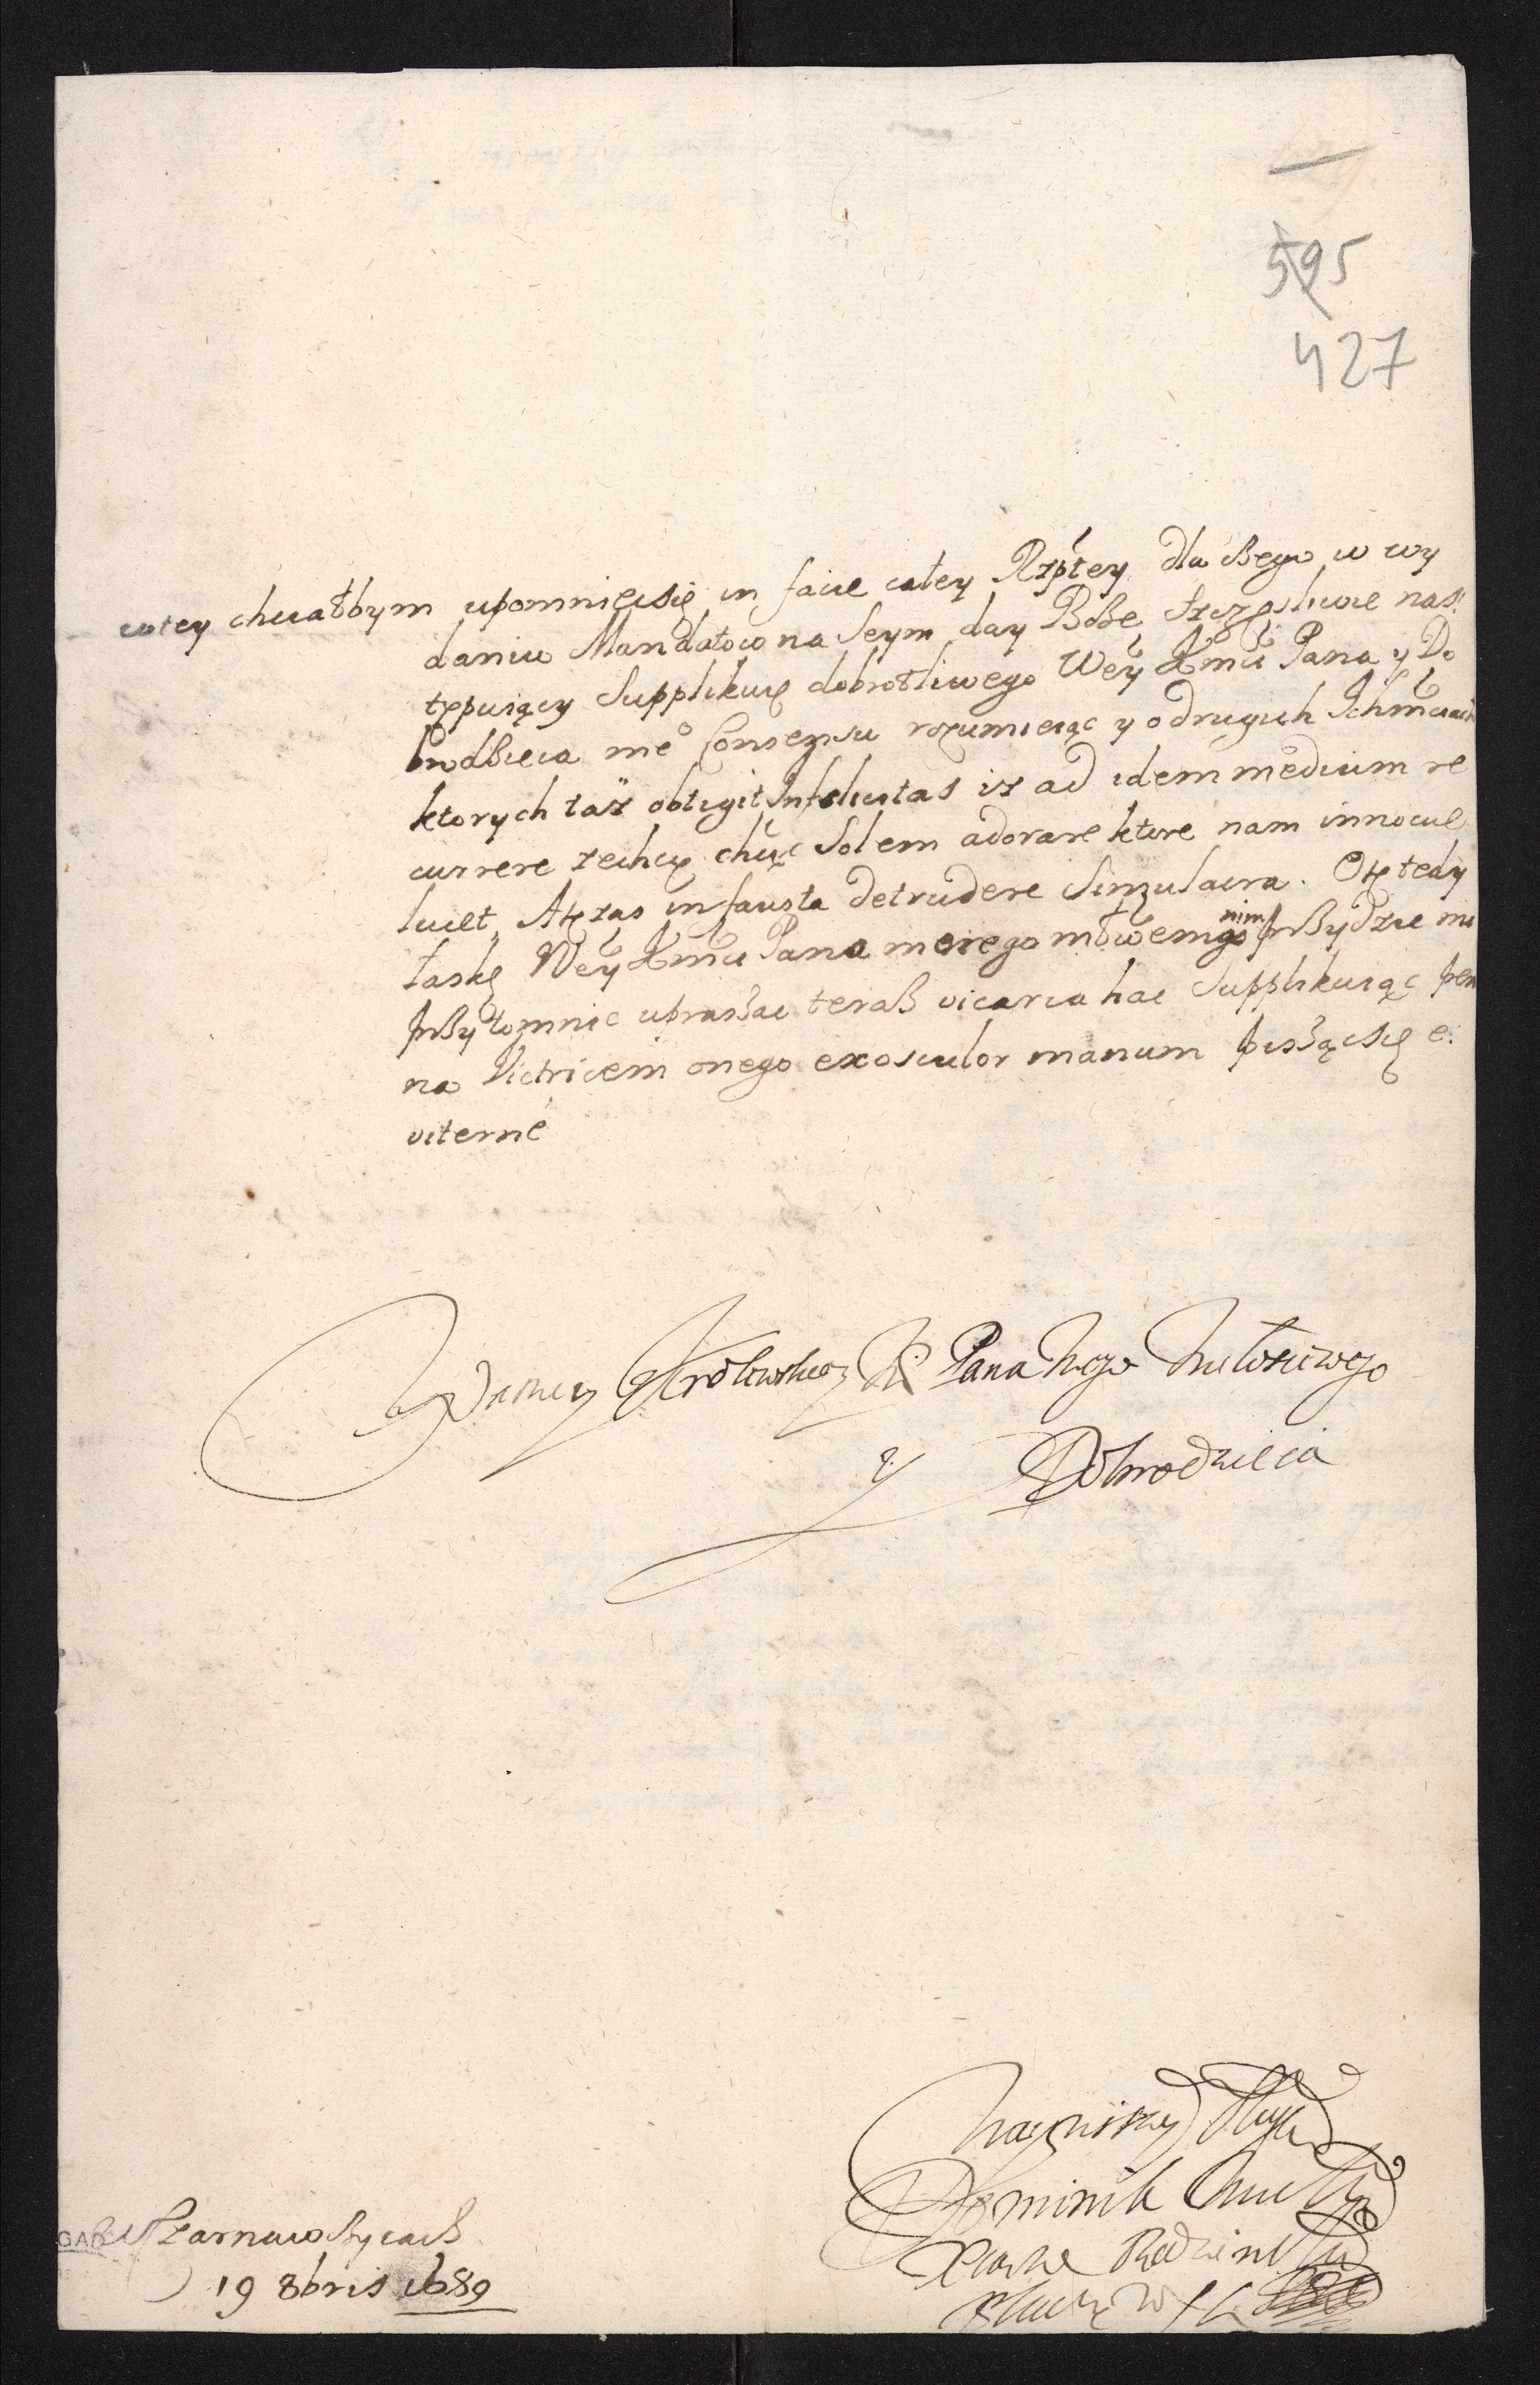 595
427
chciałbym upomnieć się in facie całey Rzptey dla czego w wy
daniu Mandatow na Seym day Boże szczęsliwie nas
tępuiący Supplikuię dobrotliwego Wey Kmći Pana y Do
brodzieia mego Consensu rozumieiąc y o drugich Ichmciach
ktorych taż obtigit Infelicitas iż ad idem medium re
currere zechcą chcąc Solem adorare ktore nam innocue
lucet, A tęzas infausta detrudere Simulacra. O tę tedy
łaskę Wey Kmći Pana mego młwego nim przydzie mi
przytomnie upraszac teraz vicaria hac Supplikuiąc
na Victricem onego exosculor manum pisząc się e
viterne
Waszey Krolewskiey Mći Pana Mego Miłosciwego
y Dobrodzieia
Nayniszy sługa
Dominik
Radziwił
w Czarnawczycach
19 8bris 1689